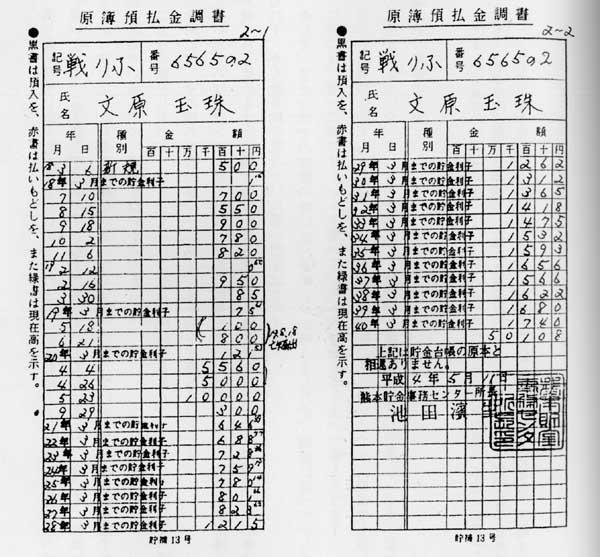 原簿預払金調書
2~1
●黒書は預入を、赤書は払いもどしを、また緑書は現在高を示す。
記号 戦りふ 番号 656502
氏名 文原玉珠
年月日 種別 金額
百十万千百十円
18 3 6 新規 500
18年3月までの貯金利子
7 10 700
8 15 550
9 18 900
10 2 780
11 6 820
19
2 12
2 16 950
3 30 85
19年3月までの貯金利子 75
5 18 100
6 21 800
20年3月までの貯金利子 121
4 4 5560
4 26 5000
5 23 10000
9 29 300
21年3月までの貯金利子 646
22年3月までの貯金利子 688
23年3月までの貯金利子 728
24年3月までの貯金利子 759
25年3月までの貯金利子 780
26年3月までの貯金利子 801
27年3月までの貯金利子 823
28年3月までの貯金利子 1215
貯補13号
原簿預払金調書
2~2
●黒書は預入を、赤書は払いもどしを、また緑書は現在高を示す。
記号 戦りふ 番号 656502
氏名 文原玉珠
年月日 種別 金額
百十万千百十円
29年3月までの貯金利子 1262
30年3月までの貯金利子 1312
31年3月までの貯金利子 1365
32年3月までの貯金利子 1418
33年3月までの貯金利子 1475
34年3月までの貯金利子 1532
35年3月までの貯金利子 1593
36年3月までの貯金利子 1656
37年3月までの貯金利子 1566
38年3月までの貯金利子 1622
39年3月までの貯金利子 1680
40年3月までの貯金利子 1740
50108
上記は貯金台帳の原本と
相違ありません。
平成4年5月11日
熊本貯金事務センター所長
池田濱
貯補13号